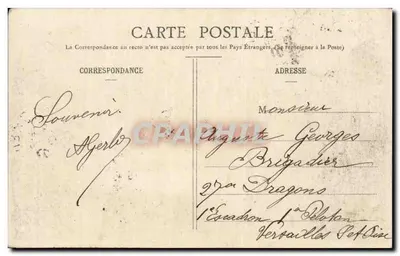 CARTE POSTALE
La Correspondance au recto n'est pas acceptée par tous les Pays Étrangers. (Se renseigner à la Poste)
CORRESPONDANCE
ADRESSE
Souvenir
Monsieur
Auguste Georges
Brigadier
27me Dragons
1er Escadron 1er Peloton
Versailles Set Oise
CARTE POSTALE